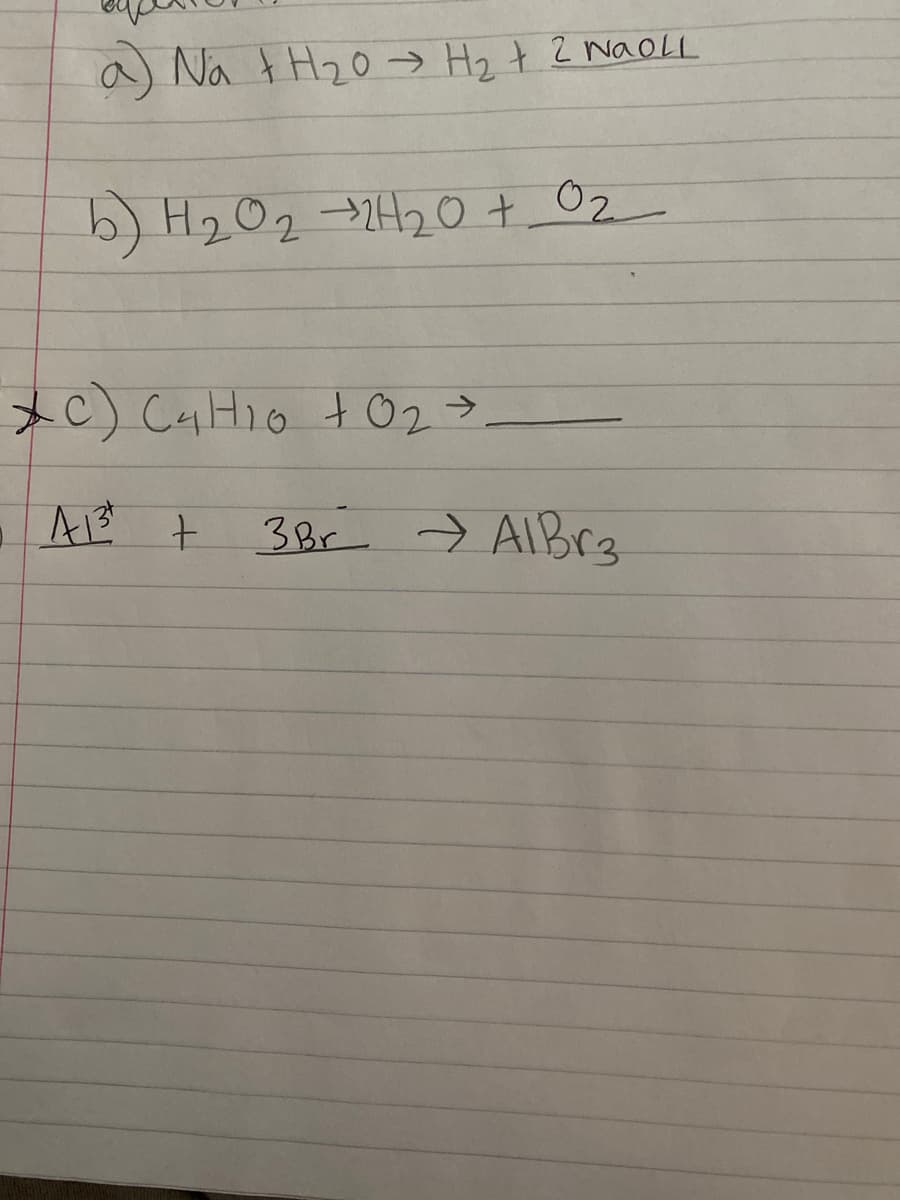 a) Na + H2O → H2 + 2 NaOLL
b) H2O2 →2H2O + O2
*c) C4H10 + O2 → ___
Al3+ + 3Br- → AlBr3